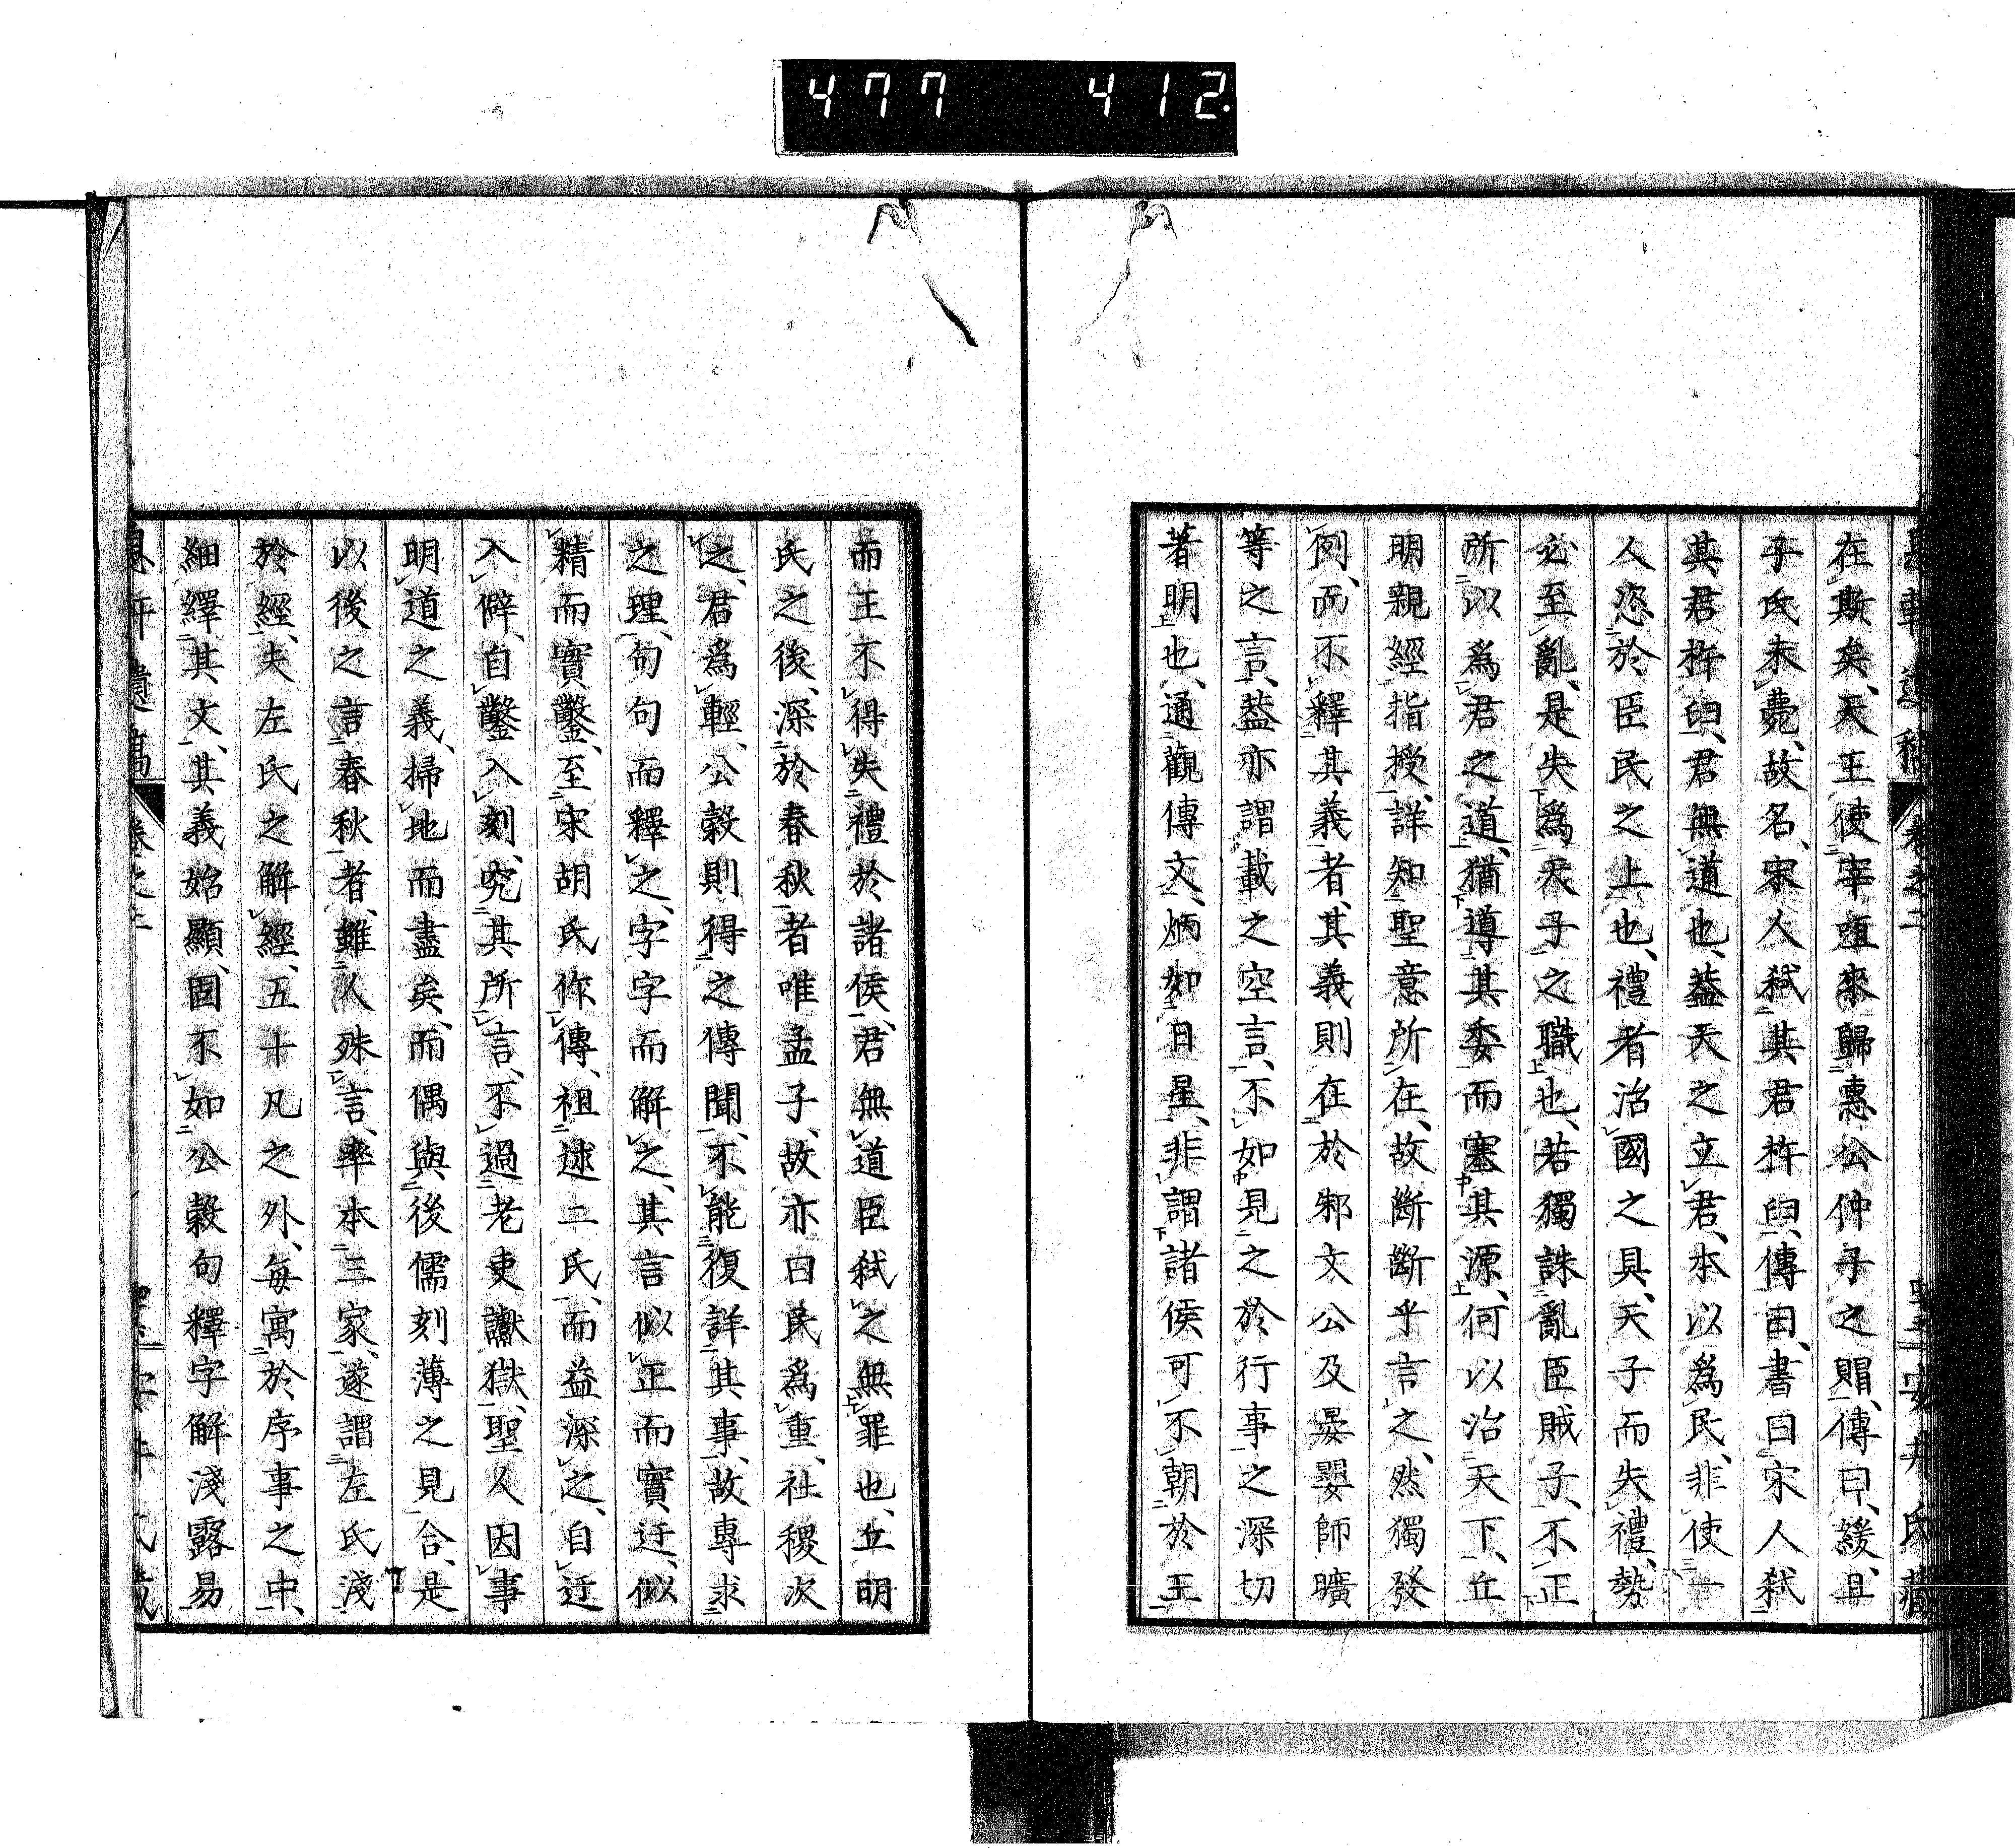 477 412
在斯矣、天王使宰咺來歸惠公仲子之賵、傳曰、緩、且
子氏未薨、故名、宋人弑其君杵臼、傳曰、書曰宋人弑
其君杵臼、君無道也、蓋天之立君、本以爲民、非使一
人恣於臣民之上也、禮者治國之具、天子而失禮、勢
必至亂、是失爲天子之職也、若獨誅亂臣賊子、不正
所以爲君之道、猶導其委而塞其源、何以治天下、丘
明親經指授、詳知聖意所在、故斷斷乎言之、然獨發
例、而不釋其義者、其義則在於邾文公及晏嬰師曠
等之言、蓋亦謂載之空言、不如見之於行事之深切
著明也、通觀傳文、炳如日星、非謂諸侯可不朝於王
而王不得失禮於諸侯、君無道臣弑之無罪也、丘明
氏之後、深於春秋者唯孟子、故亦曰民爲重、社稷次
之、君爲輕、公穀則得之傳聞、不能復詳其事、故專求
之理、句句而釋之、字字而解之、其言似正而實迂、似
精而實鑿、至宋胡氏作傳、祖述二氏、而益深之、自迂
入僻、自鑿入刻、究其所言、不過老吏讞獄、聖人因事
明道之義、掃地而盡矣、而偶與後儒刻薄之見合、是
以後之言春秋者、雖人殊言、率本三家、遂謂左氏淺
於經、夫左氏之解經、五十凡之外、每寓於序事之中、
細繹其文、其義始顯、固不如公穀句釋字解淺露易